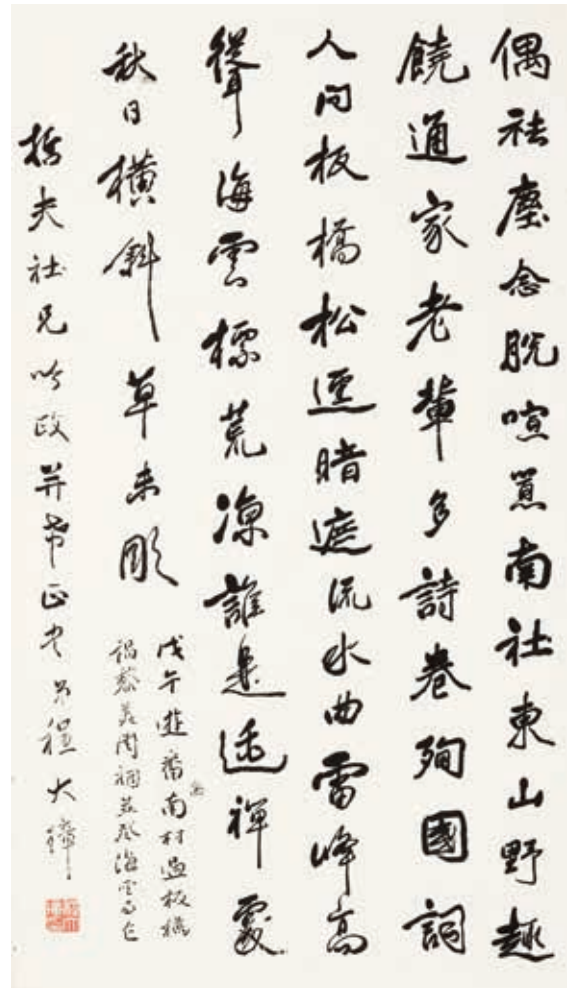 偶祛塵念脫喧囂南社東山野趣
饒通家老輩多詩卷殉國詞
人問板橋松逕暗遮流水曲雷峰高
聳海雲標荒涼誰是逃禪處
秋日橫斜草未彫
戊午遊番南村過板橋
謁黎美周祠並登海雲寺作
夫社兄吟政并希正字弟程大璋